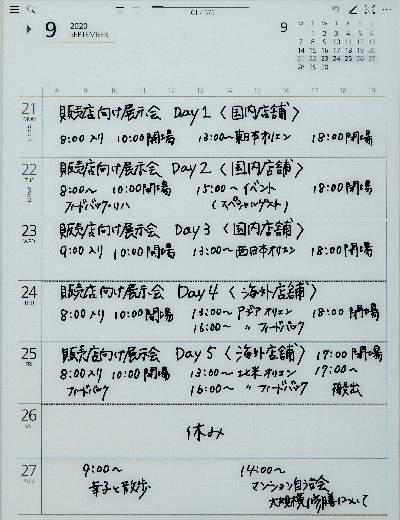 61 / 375
9 2020 SEPTEMBER
9
M T W T F S S
1 2 3 4 5 6
7 8 9 10 11 12 13
14 15 16 17 18 19 20
21 22 23 24 25 26 27
28 29 30
8 9 10 11 12 13 14 15 16 17 18 19
21 MON 販売店向け展示会 Day 1 〈国内店舗〉
8:00 入り 10:00 開場 13:00〜東日本オリエン 18:00 閉場
22 TUE 販売店向け展示会 Day 2 〈国内店舗〉
8:00〜 10:00 開場 15:00〜イベント 18:00 閉場
フィードバック・リハ (スペシャルゲスト)
23 WED 販売店向け展示会 Day 3 〈国内店舗〉
9:00 入り 10:00 開場 13:00〜西日本オリエン 18:00 閉場
24 THU 販売店向け展示会 Day 4 〈海外店舗〉
8:00 入り 10:00 開場 13:00〜アジアオリエン 18:00 閉場
16:00〜 〃 フィードバック
25 FRI 販売店向け展示会 Day 5 〈海外店舗〉 17:00 閉場
8:00 入り 10:00 開場 13:00〜北米オリエン 17:00〜
フィードバック 16:00〜 〃 フィードバック 搬出
26 休み
27 SUN 9:00〜 14:00〜
幸子と散歩 マンション自治会
大規模修繕について